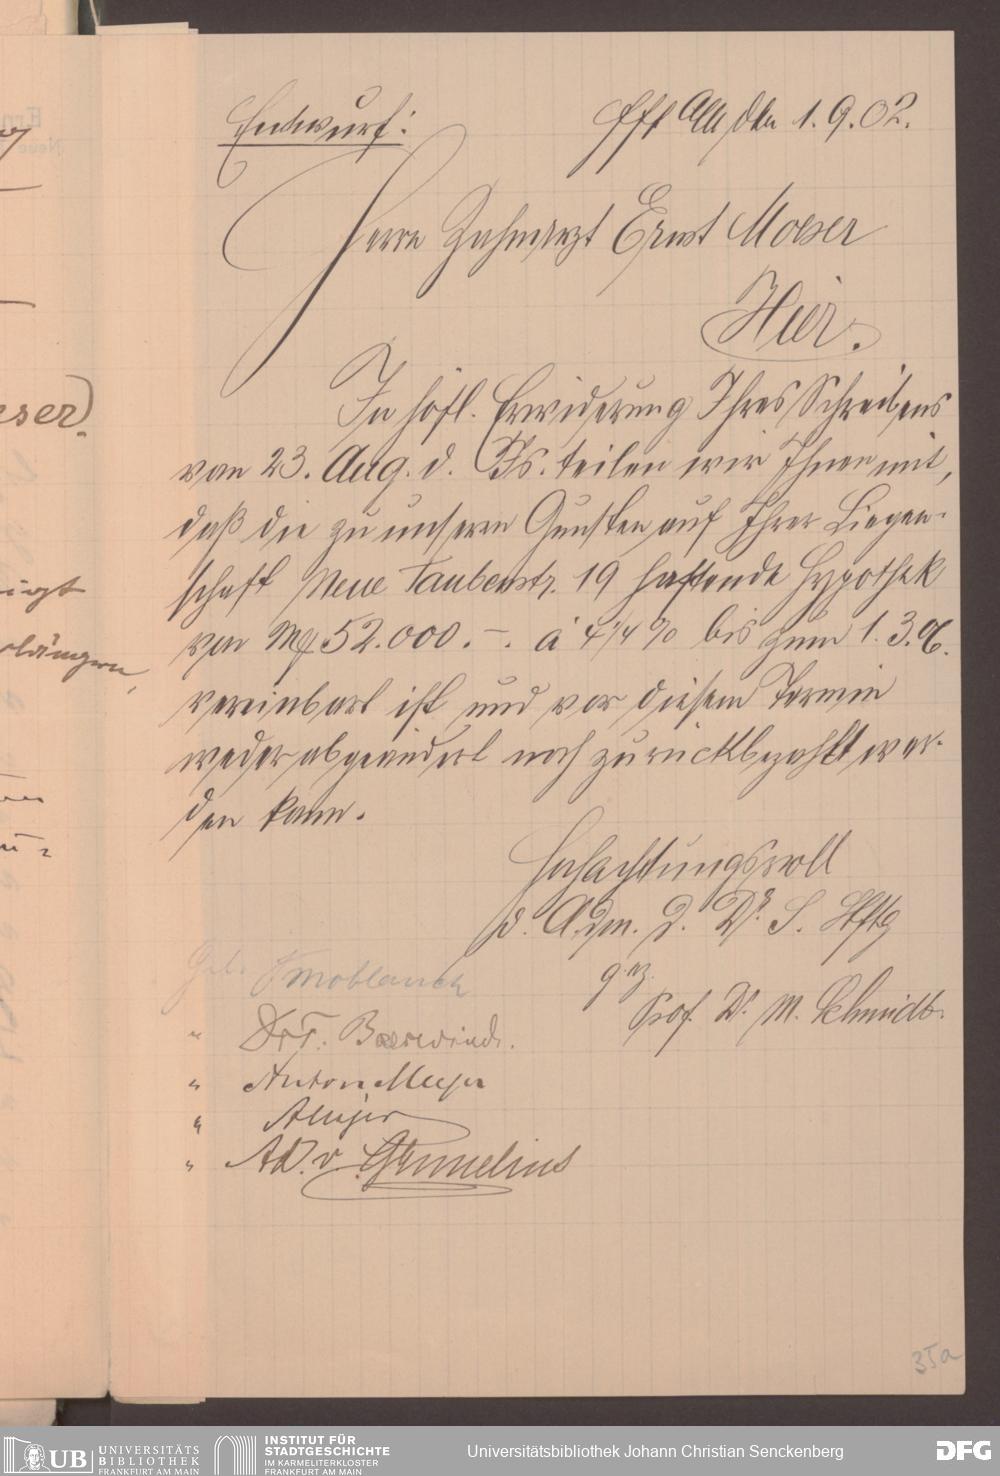 Entwurf:
Fft a/M den 1.9.02.
Herrn Zahnarzt Ernst Moeser
Hier.
In höfl. Erwiderung Ihres Schreibens
von 23. Aug. d. Js. teilen wir Ihnen mit,
daß die zu unseren Gunsten auf Ihrer Liegen-
schaft Neue Taubenstr. 19 haftende Hypothek
von M 52.000.–. à 4 1/4 % bis zum 1.3.06.
vereinbart ist und vor diesem Termin
weder abgeändert noch zurückbezahlt wer-
den kann.
Hochachtungsvoll
d. Adm. d. Dr. S. Stftg
gez.
Prof. Dr. M. Schmidt.
Knoblauch
" Dr F. Baerwind.
" Anton Meyer
" A Meyer
" Ad. v. Grunelius
35a
eser).
igt
UB UNIVERSITÄTS
BIBLIOTHEK
FRANKFURT AM MAIN
INSTITUT FÜR
STADTGESCHICHTE
IM KARMELITERKLOSTER
FRANKFURT AM MAIN
Universitätsbibliothek Johann Christian Senckenberg
DFG